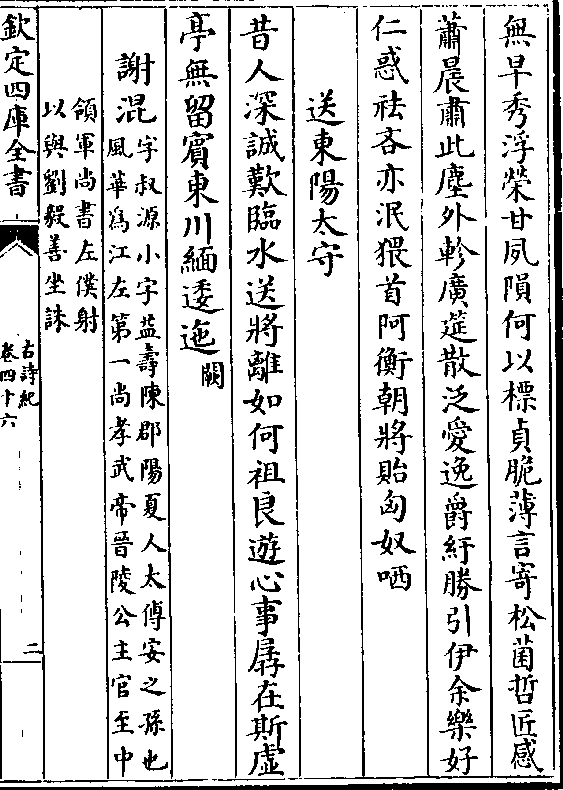 無早秀浮榮甘夙隕何以標貞脆薄言寄松菌哲匠感
蕭晨肅此塵外軫廣筵散泛愛逸爵紆勝引伊余樂好
仁惑祛吝亦泯猥首阿衡朝將貽匈奴哂
送東陽太守
昔人深誠歎臨水送將離如何祖良遊心事孱在斯虚
亭無留賓東川緬逶迤闕
謝混字叔源小字益壽陳郡陽夏人太傅安之孫也
風華爲江左第一尚孝武帝晉陵公主官至中
領軍尚書左僕射
以與劉毅善坐誅
欽定四庫全書
古詩紀
卷四十六
二